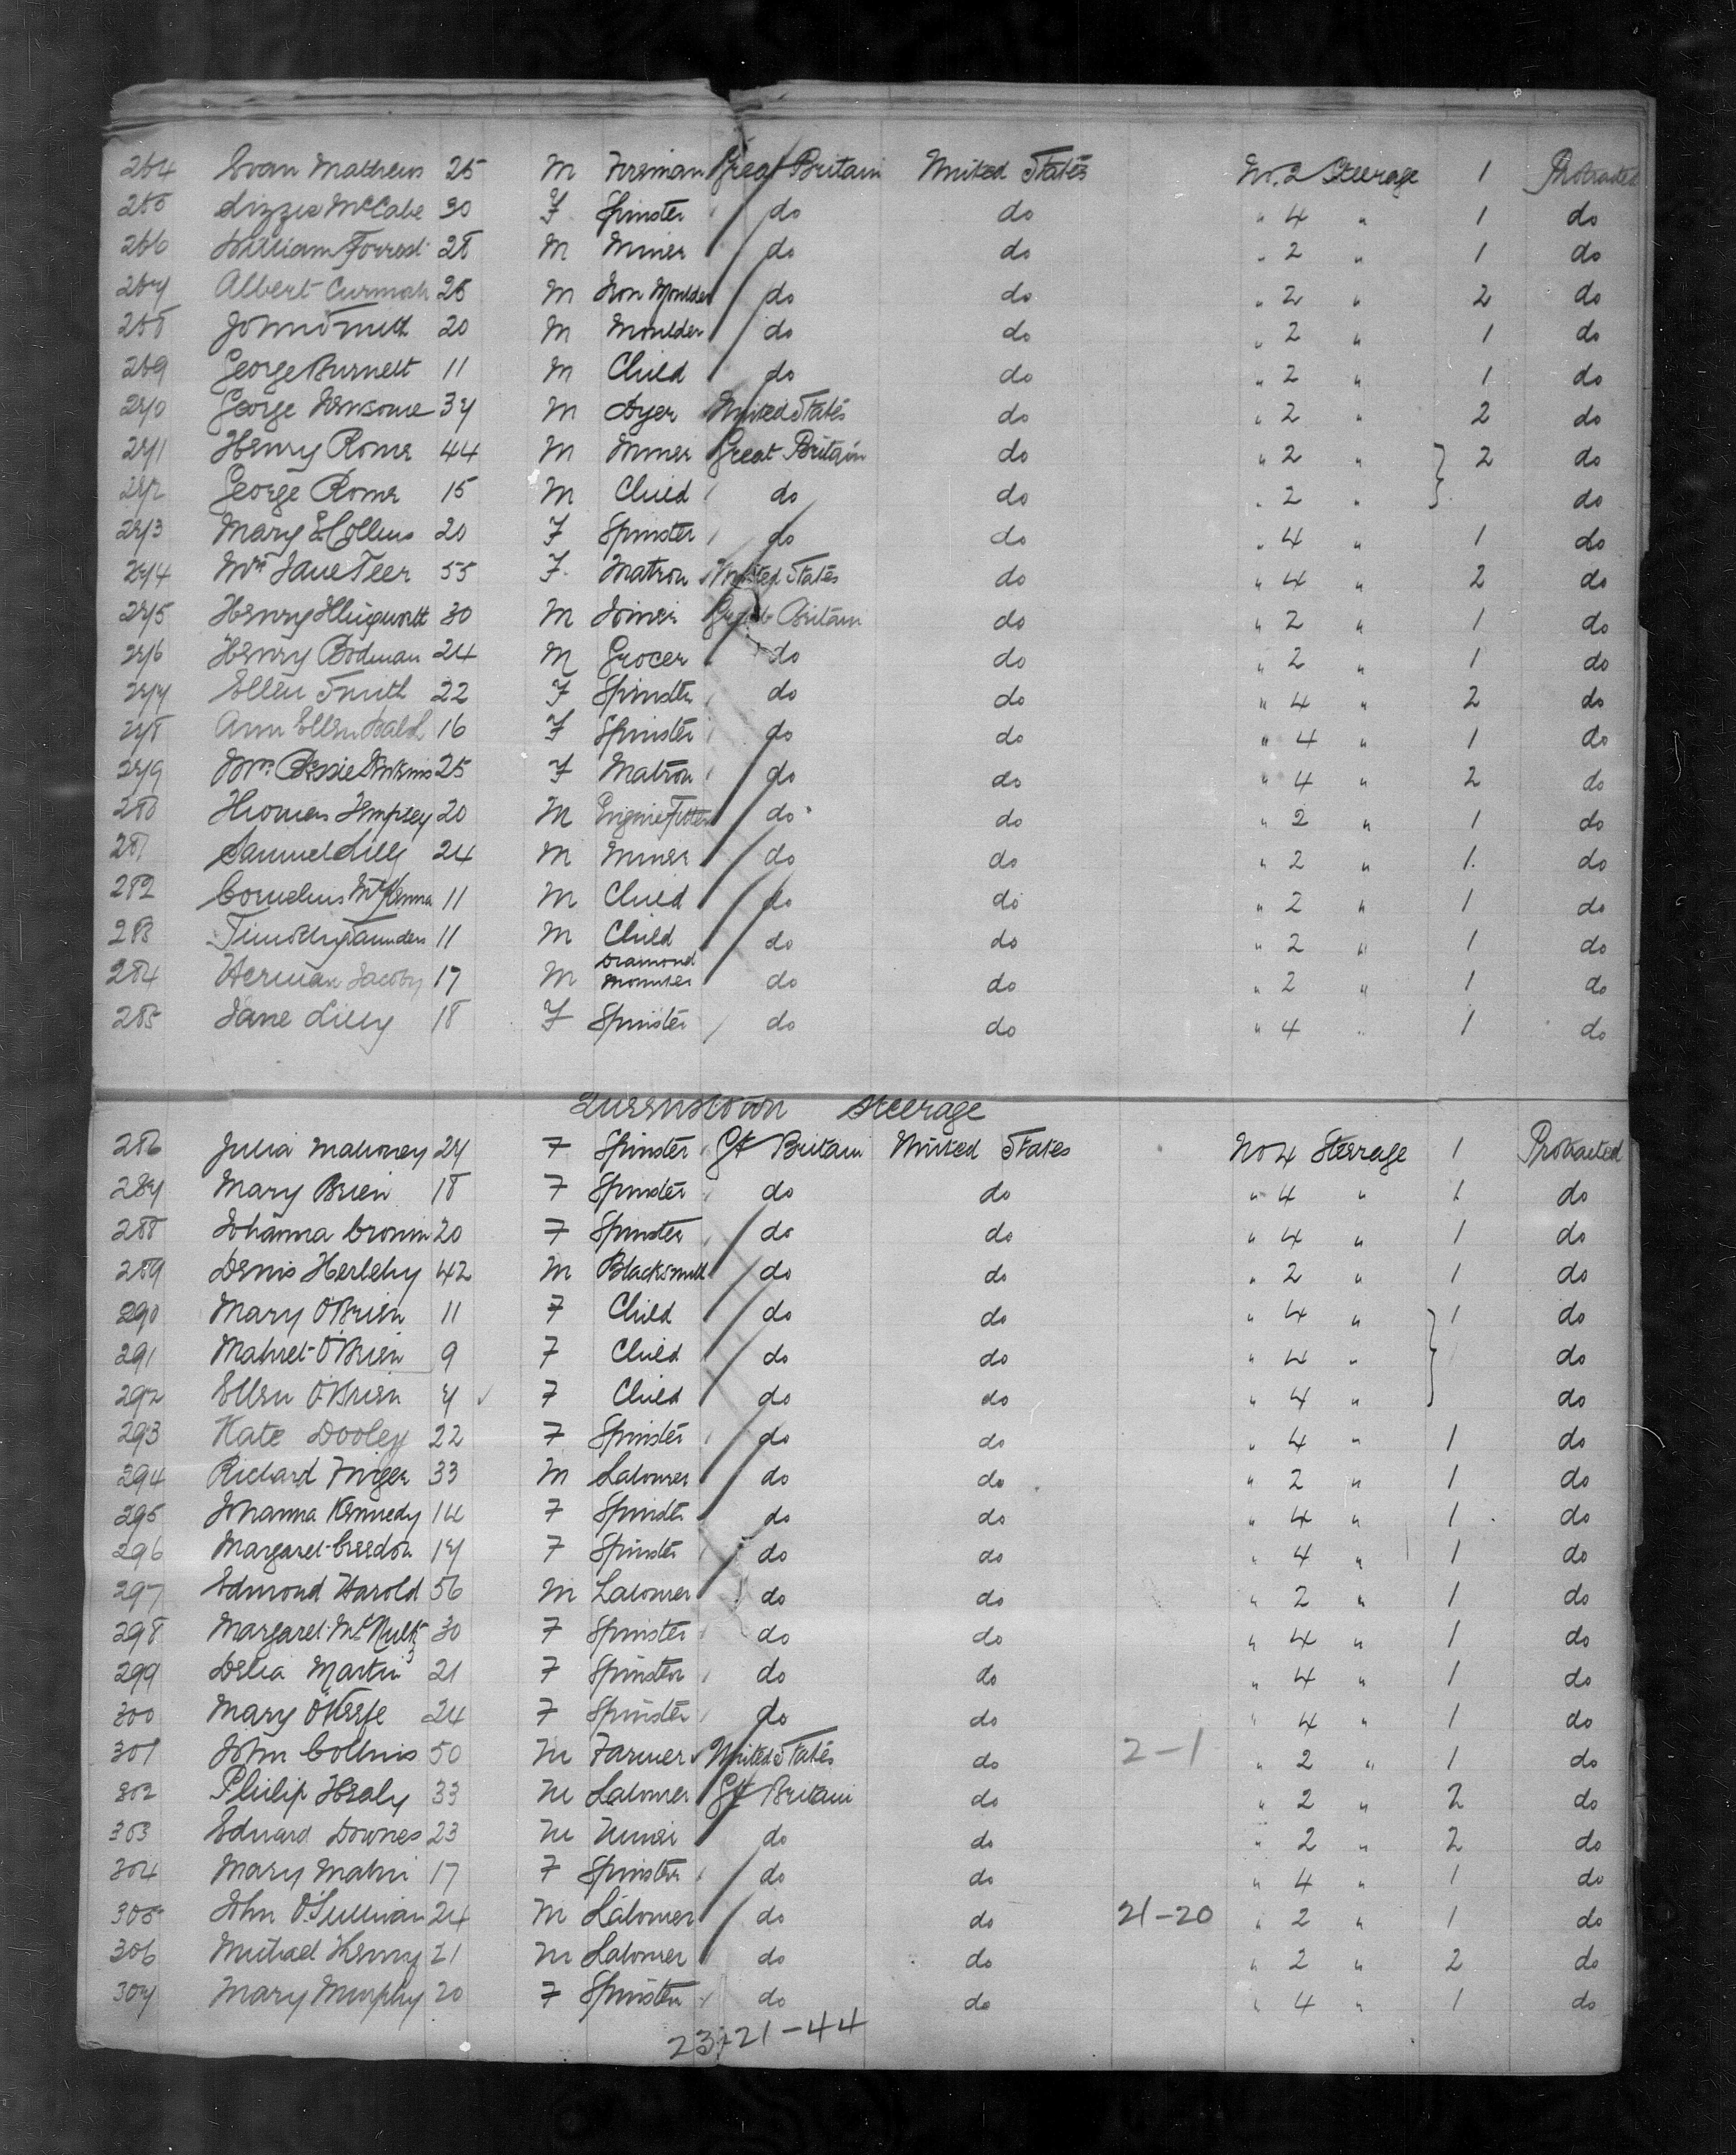 264 Evan Mathews 25 M Fireman Great Britain United States No. 2 Steerage 1 Protracted
265 Lizzie McCabe 30 F Spinster do do " 4 " 1 do
266 William Forrest 28 M Miner do do " 2 " 1 do
267 Albert 25 M Iron Moulder do do " 2 " 2 do
268 John Smith 20 M Moulder do do " 2 " 1 do
269 George Burnett 11 M Child do do " 2 " 1 do
270 George 37 M Dyer United States do " 2 " 2 do
271 Henry Rome 44 M Miner Great Britain do " 2 " 2 do
272 George Rome 15 M Child do do " 2 " do
273 Mary E Collins 20 F Spinster do do " 4 " 1 do
274 Mrs Jane Teer 55 F Matron United States do " 4 " 2 do
275 Henry Illingworth 30 M Joiner Great Britain do " 2 " 1 do
276 Henry Bodman 24 M Grocer do do " 2 " 1 do
277 Ellen Smith 22 F Spinster do do " 4 " 2 do
278 Ann Ellen 16 F Spinster do do " 4 " 1 do
279 Mrs. Bessie 25 F Matron do do " 4 " 2 do
280 Thomas 20 M Engine Fitter do do " 2 " 1 do
281 Samuel Lilly 24 M Miner do do " 2 " 1 do
282 Cornelius McKenna 11 M Child do do " 2 " 1 do
283 Timothy Saunders 11 M Child do do " 2 " 1 do
284 Herman Jacoby 17 M Diamond Mounter do do " 2 " 1 do
285 Jane Lilly 18 F Spinster do do " 4 " 1 do
Queenstown Steerage
286 Julia Mahoney 27 F Spinster Gt Britain United States No 4 Steerage 1 Protracted
287 Mary Brien 18 F Spinster do do " 4 " 1 do
288 Johanna Cronin 20 F Spinster do do " 4 " 1 do
289 Denis Herlehy 42 M Blacksmith do do " 2 " 1 do
290 Mary O'Brien 11 F Child do do " 4 " 1 do
291 O'Brien 9 F Child do do " 4 " do
292 Ellen O'Brien 7 F Child do do " 4 " do
293 Kate Dooley 22 F Spinster do do " 4 " 1 do
294 Richard 33 M Labourer do do " 2 " 1 do
295 Johanna Kennedy 14 F Spinster do do " 4 " 1 do
296 Margaret Creedon 17 F Spinster do do " 4 " 1 do
297 Edmond Harold 56 M Labourer do do " 2 " 1 do
298 Margaret McNulty 30 F Spinster do do " 4 " 1 do
299 Delia Martin 21 F Spinster do do " 4 " 1 do
300 Mary O'Keefe 24 F Spinster do do " 4 " 1 do
301 John Collins 50 M Farmer United States do 2-1 " 2 " 1 do
302 Philip Healy 33 M Labourer Gt Britain do " 2 " 2 do
303 Edward Downes 23 M Miner do do " 2 " 2 do
304 Mary 17 F Spinster do do " 4 " 1 do
305 John O'Sullivan 24 M Labourer do do 21-20 " 2 " 1 do
306 Michael Henry 21 M Labourer do do " 2 " 2 do
307 Mary Murphy 20 F Spinster do do " 4 " 1 do
23-21-44